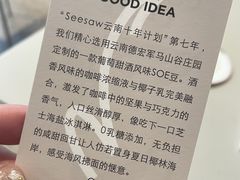 GOOD IDEA
“Seesaw云南十年计划”第七年，
我们精心选用云南德宏军马山谷庄园
定制的一款葡萄甜酒风味SOE豆。酒
香风味的咖啡浓缩液与椰子乳完美融
合，激发了咖啡中的坚果与巧克力的
香气，入口丝滑醇厚，像吃下一口芝
士海盐冰淇淋。0乳糖添加，无负担
的咸甜回甘让人仿若置身夏日椰林海
岸，感受海风拂面的惬意。